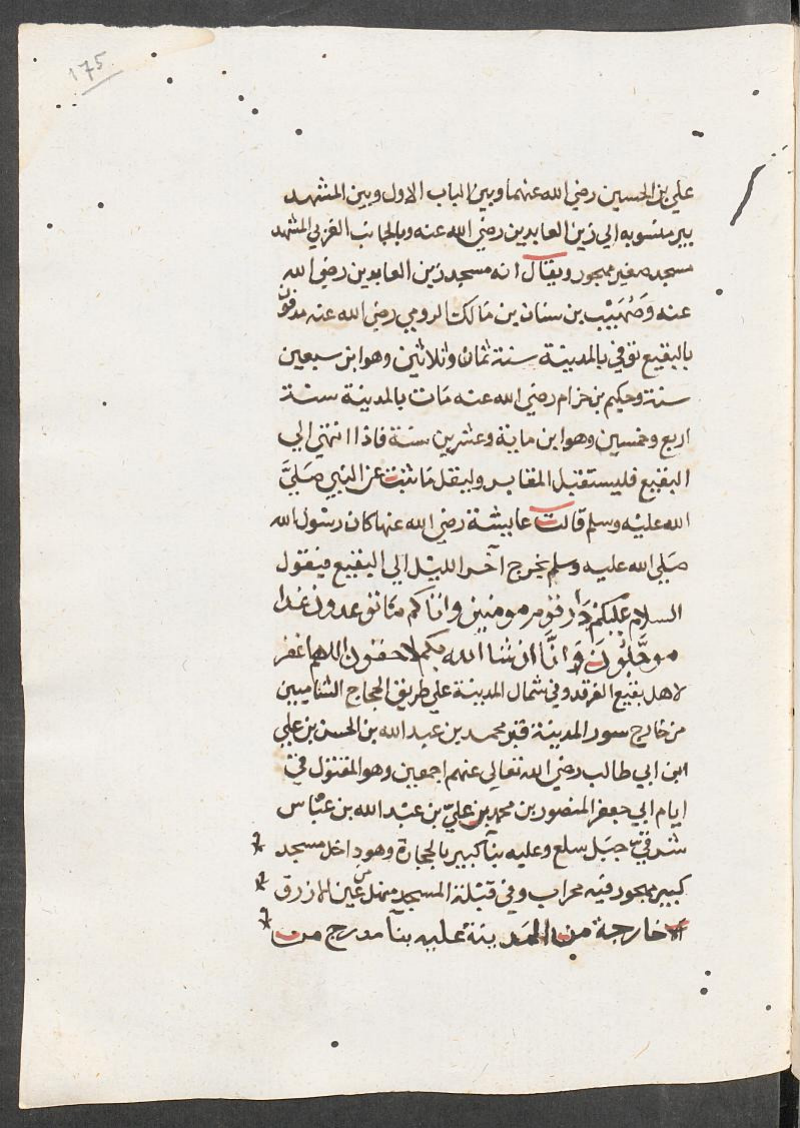 175
علي بن الحسين رضي الله عنهما وبين الباب الاول وبين المشهد
بير منسوبه الي زين العابدين رضي الله عنه وبالجانب الغربي المشهد
مسجد صغير مهجور ويقال انه مسجد زين العابدين رضي الله
عنه وَصُهَيْب بن سنان بن مالك الرومي رضي الله عنه مدفون
بالبقيع توفي بالمدينة سنة ثمان وثلاثين وهو ابن سبعين
سنة وحكيم بن حزام رضي الله عنه مات بالمدينة سنة
اربع وخمسين وهو ابن ماية وعشرين سنة فاذا انتهي الي
البقيع فليستقبل المقابر وليقل ما ثبت عن النبي صَلَيَّ
الله عليه وسلم قالت عايشة رضي الله عنها كان رسول الله
صَلي الله عليه وسلم يخرج آخر الليل الي البقيع فيقول
السلام عَليكمْ دَارَ قوم مومنين واتاكم ما توعدون غدا
موجَّلوُنَ وَانَّا ان شا الله بكم لاحقون اللهم اغفر
لاهل بقيع الغرقد وفي شمال المدينة علي طريق الحجاج الشاميين
من خارج سور المدينة قبر محمد بن عبد الله بن الحسن بن علي
ابن ابي طالب رضي الله تعالي عنهم اجمعين وهو المقتول في
ايام ابي جعفر المنصور بن محمد بن عليّ بن عبْد الله بن عبّاس
شرقيّ جبَل سلع وعليه بنآ كبير بالحجارة وهو داخل مسجد
كبير مهجور فيه محراب وفي قبلة المسجد منهل من عين الازرق
خارجة من المدينة عليه بنآ مدرج من